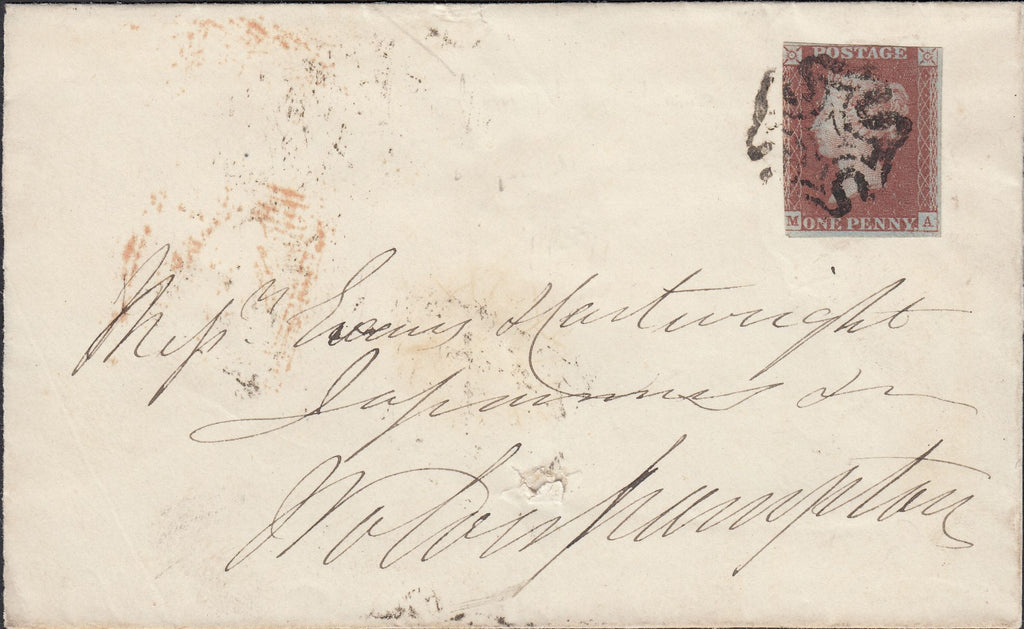 POSTAGE
M ONE PENNY. A
Messrs Evans Hartwright
Japanners &c
Wolverhampton